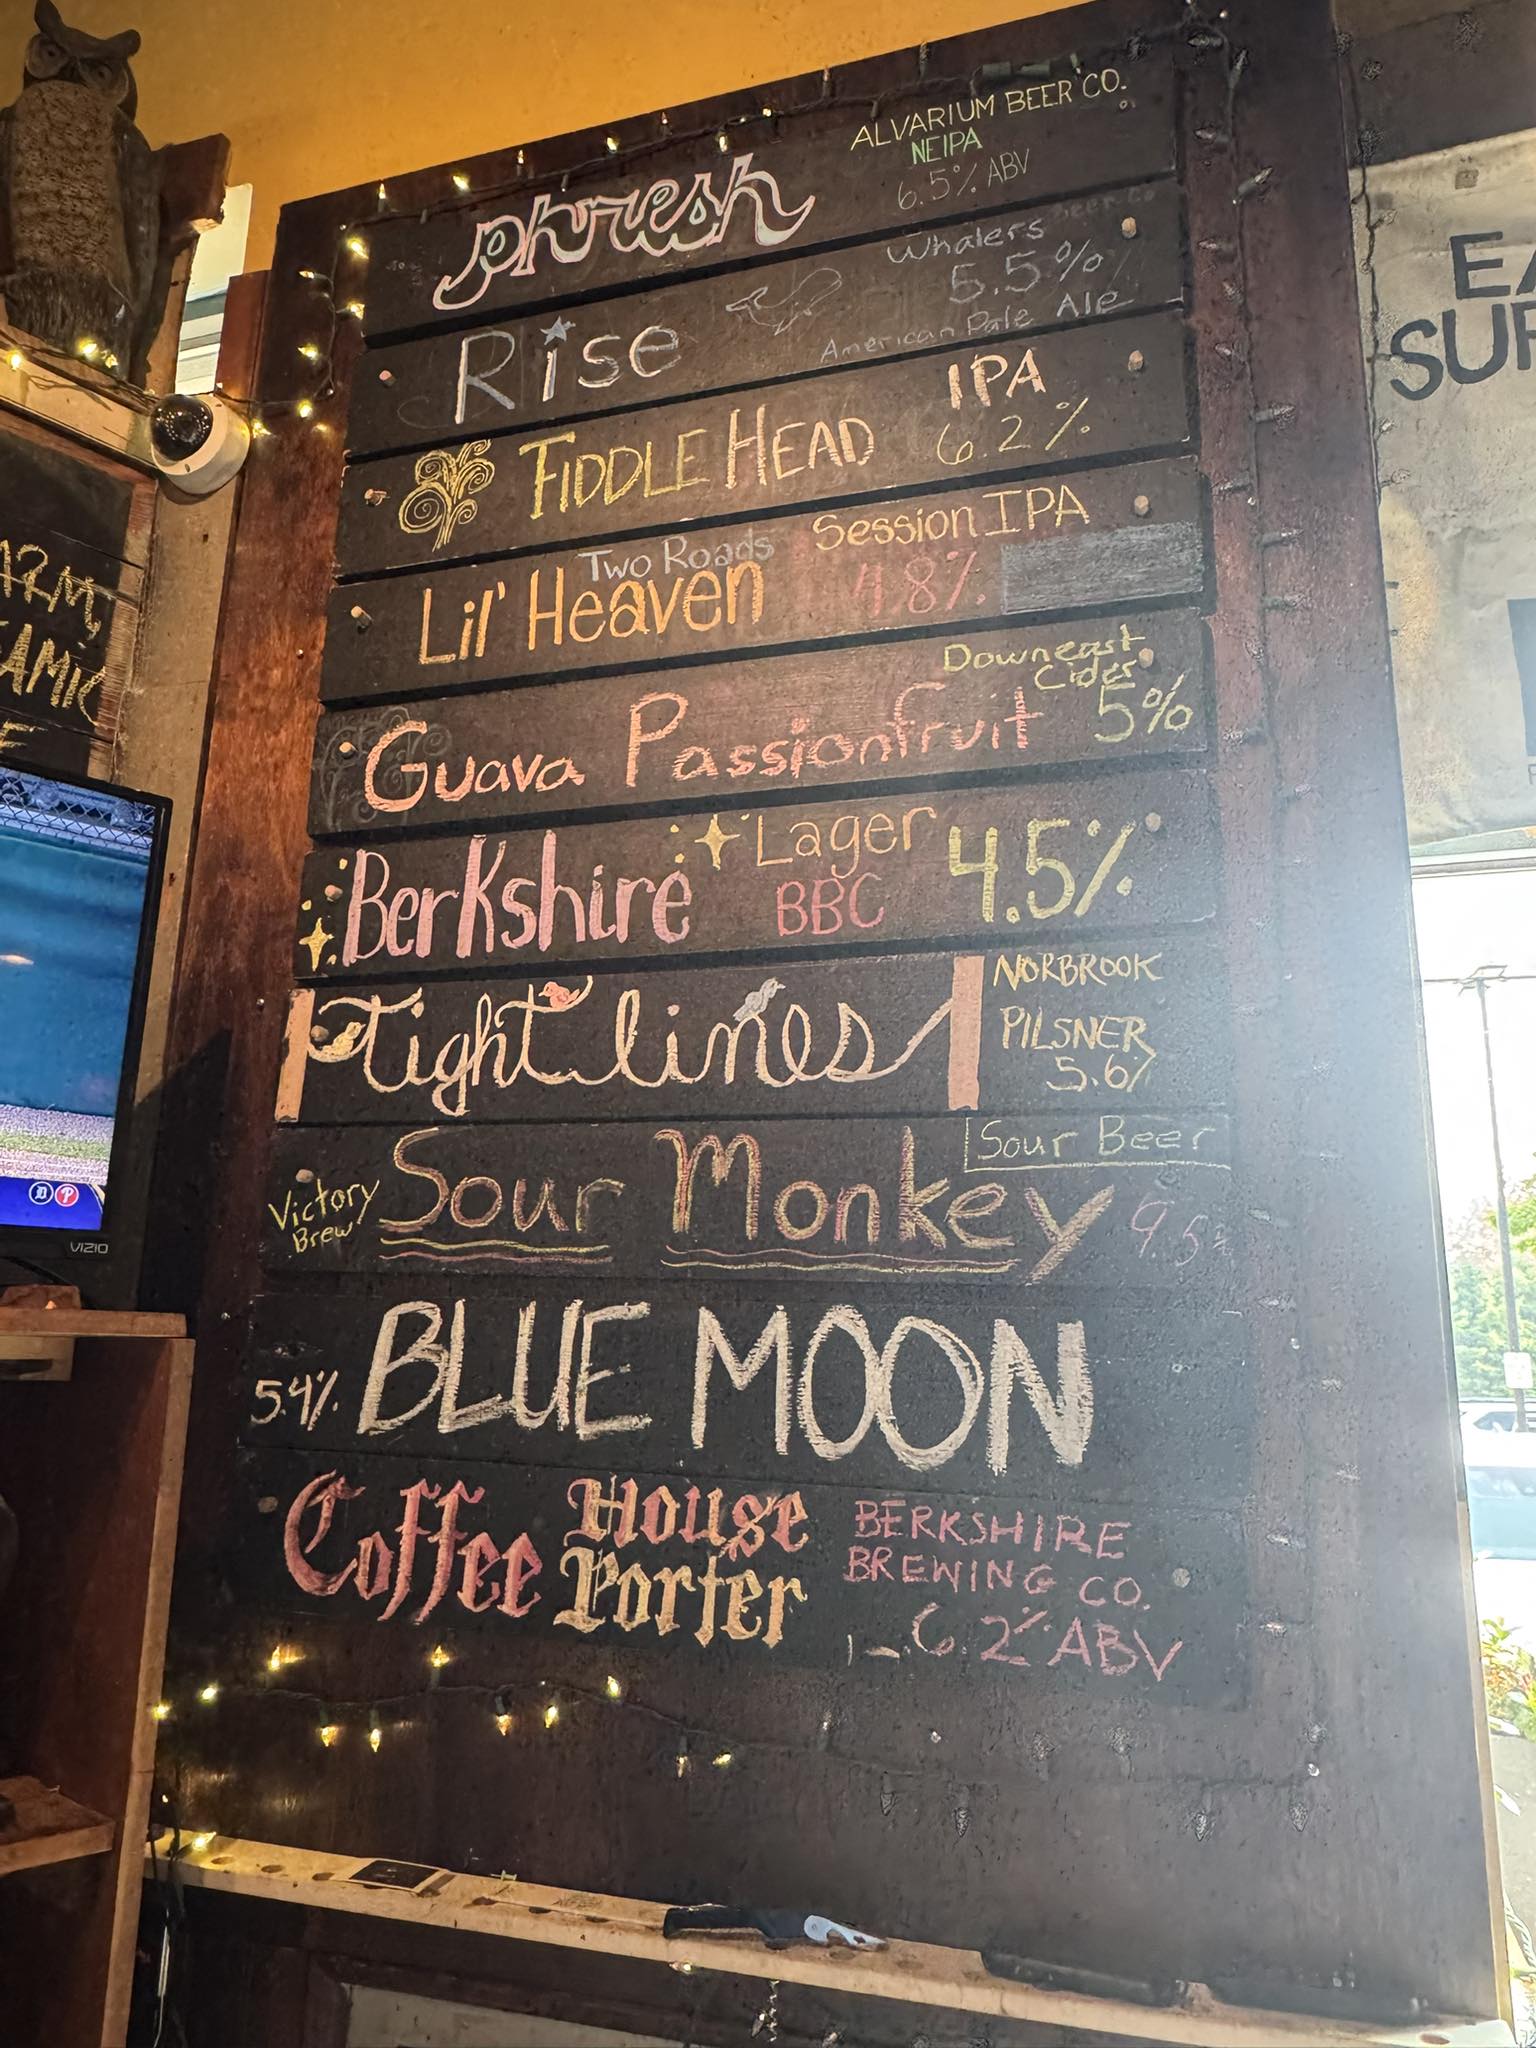 phresh
ALVARIUM BEER CO.
NEIPA
6.5% ABV
Rise
Whalers Beer Co
5.5%
American Pale Ale
FIDDLEHEAD
IPA
6.2%
Two Roads
Lil' Heaven
Session IPA
4.8%
Guava Passionfruit
Downeast
Cider
5%
Berkshire
Lager
BBC
4.5%
Tight lines
NORBROOK
PILSNER
5.6%
Victory
Brew
Sour Monkey
Sour Beer
9.5%
5.4%
BLUE MOON
Coffee House
Porter
BERKSHIRE
BREWING CO.
6.2% ABV
ARM,
EAMIC
EA
SUR
VIZIO
D P